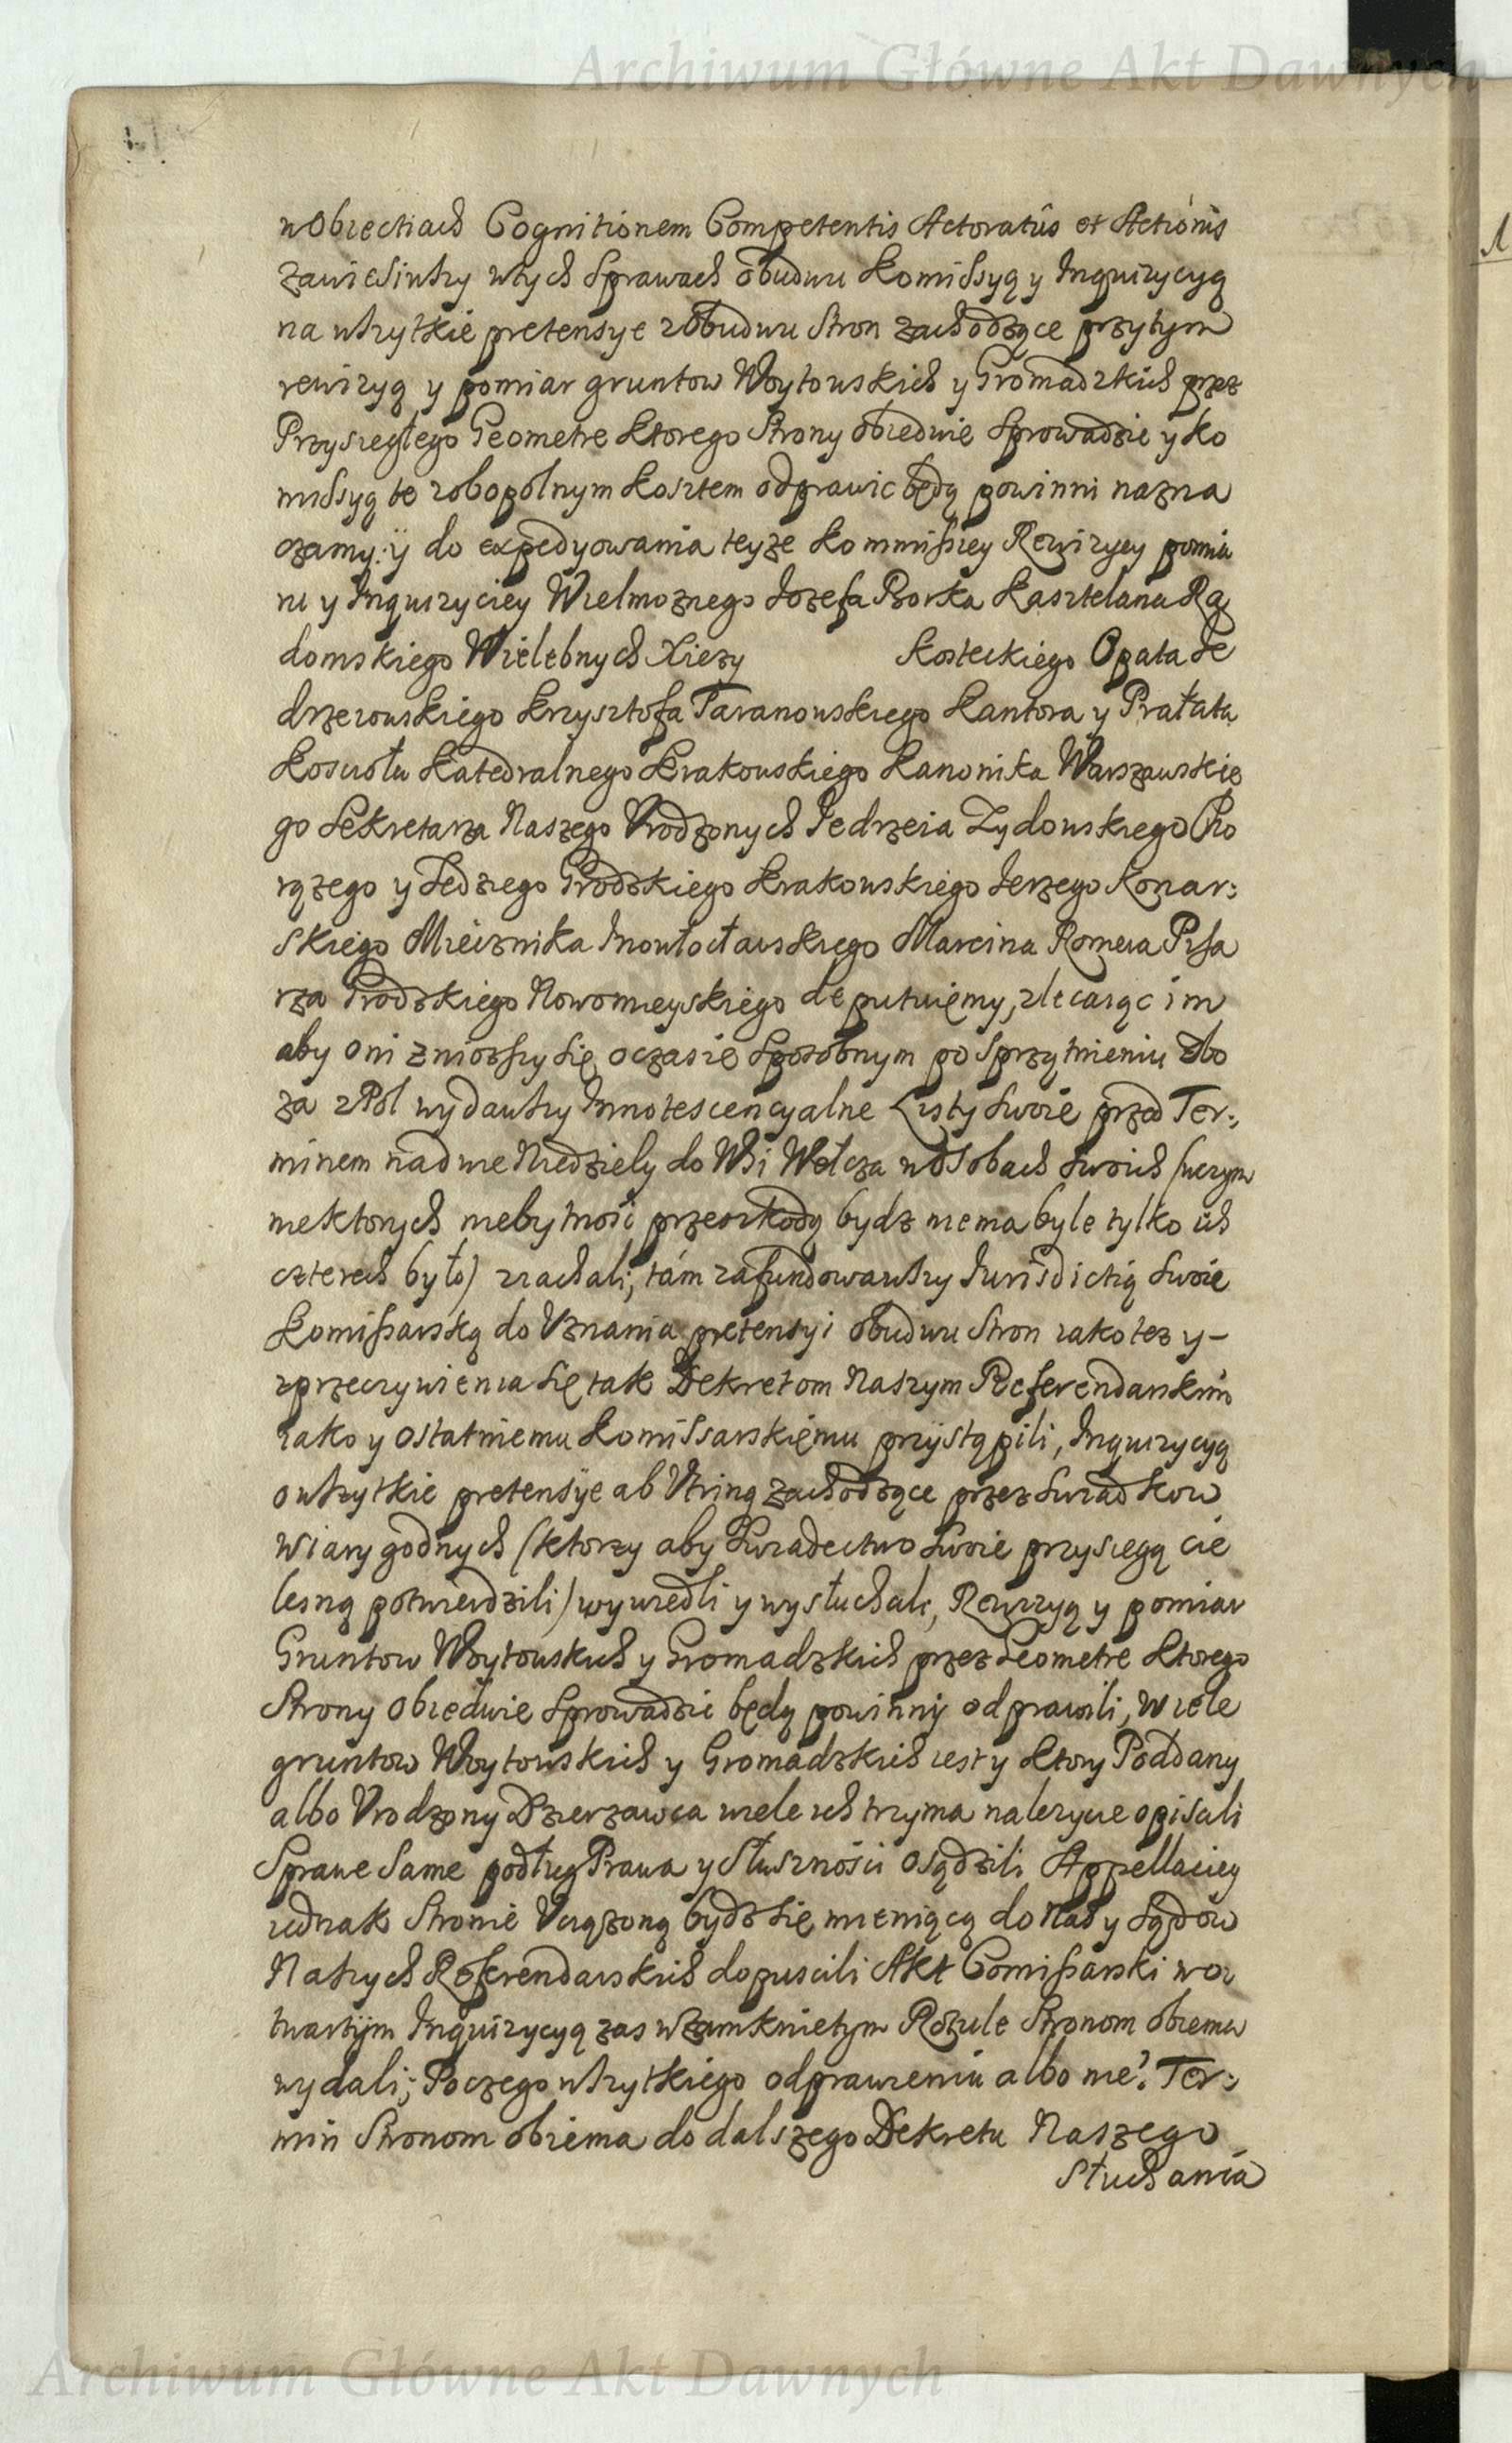 Archiwum Główne Akt Dawnych
w Obiectiach Cognitionem Competentis Actoratûs et Actionis
zawiesiwszy wtych sprawach obudwu Komissyą y Inquizycyą
na wszytkie pretensye z Obudwu stron zachodzące przytym
rewizyą y pomiar gruntow Woytowskich y Gromadzkich przez
Przysiegłego Geometre ktorego Strony obiedwie sprowadzic y Ko
missyą te zobopolnym kosztem odprawic będą powinni nazna
czamy: ÿ do expedyowania teyze Kommissiey Rewizyey pomia
ru y Inquizyciey Wielmoznego Jozefa Borka Kasztelana Ra
domskiego Wielebnych Xiezy Kosteckiego Opata Je
drzeiowskiego Krzysztofa Taranowskiego Kantora y Prałata
Koscioła Katedralnego Krakowskiego Kanonika Warszawskie
go Sekretarza Naszego Vrodzonych Jedrzeia Zydowskiego Cho
rązego y Sedziego Grodzkiego Krakowskiego Jerzego Konar:
skiego Miecznika Inowłocławskiego Marcina Romera Pisa
rza Grodzkiego Nowomieyskiego deputuiemy, zlecaiąc im
aby oni zniosszy się oczasie sposobnym po sprzątnieniu zbo
za z Pol wydawszy Innotescencyalne Listy swoie przed Ter:
minem nadwie Niedziely do Wsi Wołcza w Osobach swoich (wczym
niektorych niebytnośc przeszkodą bydz niema byle tylko ich
czterech było) ziachali, tám zafundowawszy Jurisdictią swoie
Komissarską do Vznania pretensyi obudwu Stron iako tez y –
zprzeczywienia się tak Dekretom Naszym Referendarskim
iako y ostatniemu Komissarskiemu przÿstąpili, Inquizycyą
o wszytkie pretensÿe ab Vtrinq zachodzące przez swiadkow
wiary godnych (ktorzy aby Swiadectwo swoie przysiegą cie
lesną potwierdzili) wywiedli y wysłuchali, Rewizyą y pomiar
Gruntow Woytowskich y Gromadzkich przez Geometre ktorego
Strony obiedwie sprowadzic będą powinny odprawili, Wiele
gruntow Woytowskich y Gromadzkich iest y ktory Poddany
albo Vrodzony Dzierzawca wiele ich trzyma nalezycie opisali
Sprawe same podług Prawa y Słuszności osądzili Appellaciey
iednak Stronie Vciązoną bydz się mieniącą do Nas y Sądow
Naszych Referendarskich dopuscili Akt Comissarski wo
twartÿm Inquizycyą zas w Zamknietym Rotule Stronom obiema
wydali; Po czego wszytkiego odprawieniu albo nie? Ter:
min Stronom obiema do dalszego Dekretu Naszego
słuchania
Archiwum Główne Akt Dawnych